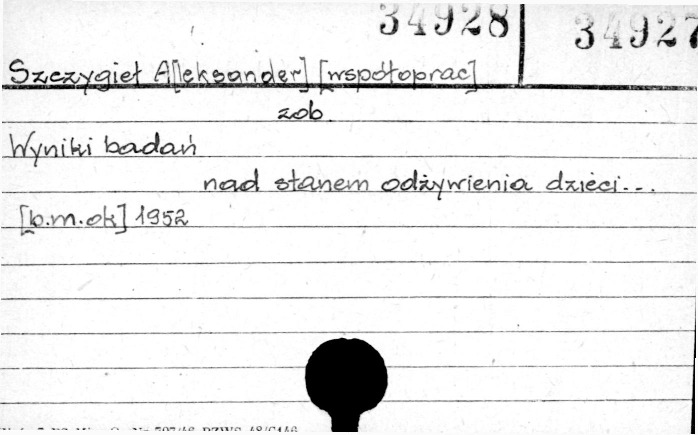 34928 34927
Szczygieł A[leksander] [współoprac]
zob.
Wyniki badań
nad stanem odżywienia dzieci...
[b.m.ok] 1952